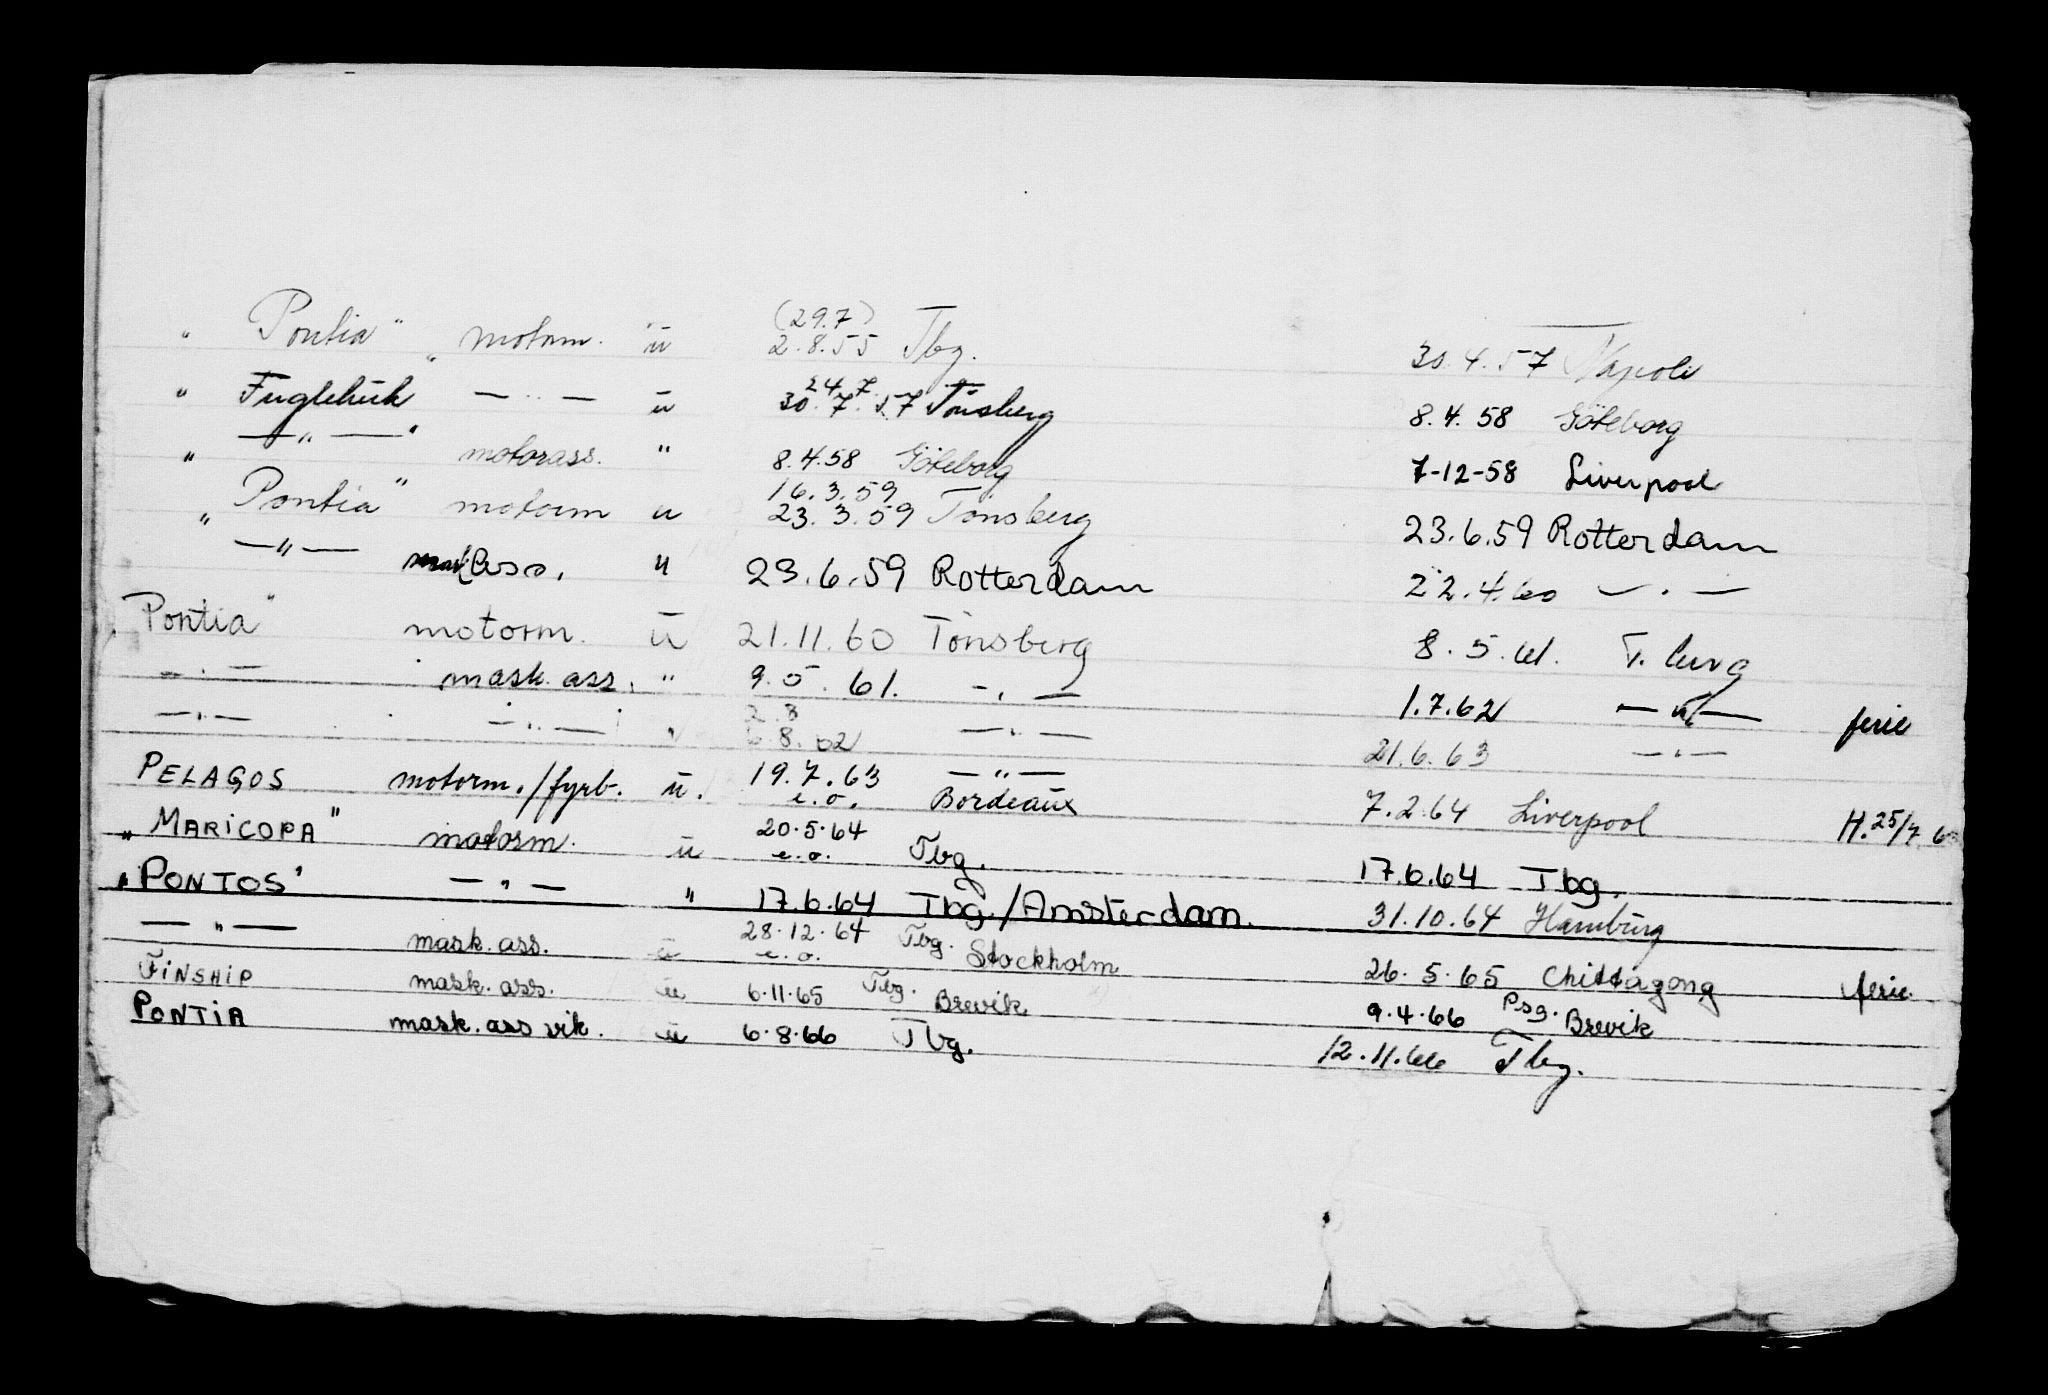 (29.7)
" Pontia " motorm. u 2.8.55 Tbg. 30.4.57 Napoli
24.7
" Fuglehuk — " — u 30.7.57 Tönsberg 8.4.58 Göteborg
" — " — " motorass. " 8.4.58 Göteborg 7-12-58 Liverpool
16.3.59
" Pontia " motorm u 23.3.59 Tönsberg 23.6.59 Rotterdam
— " — ass. " 23.6.59 Rotterdam 22.4.60 — " —
Pontia " motorm. u 21.11.60 Tönsberg 8.5.61. T.berg
— " — mask. ass. " 9.5.61. — " — 1.7.62 — " — ferie
2.8
— " — — " — " 6.8.62 — " — 21.6.63 — " —
PELAGOS motorm./fyrb. u. 19.7.63 — " —
e.o. Bordeaux 7.2.64 Liverpool H. 25/7 6
" MARICOPA " motorm. u 20.5.64
e.o. Tbg. 17.6.64 Tbg.
" PONTOS " — " — " 17.6.64 Tbg./Amsterdam. 31.10.64 Hamburg
— " — mask. ass. u 28.12.64 Tbg.
e.o. Stockholm 26.5.65 Chittagong ferie
FINSHIP mask. ass. u 6.11.65 Tbg. Brevik 9.4.66 Psg. Brevik
PONTIA mask. ass vik. u 6.8.66 Tbg. 12.11.66 Tbg.